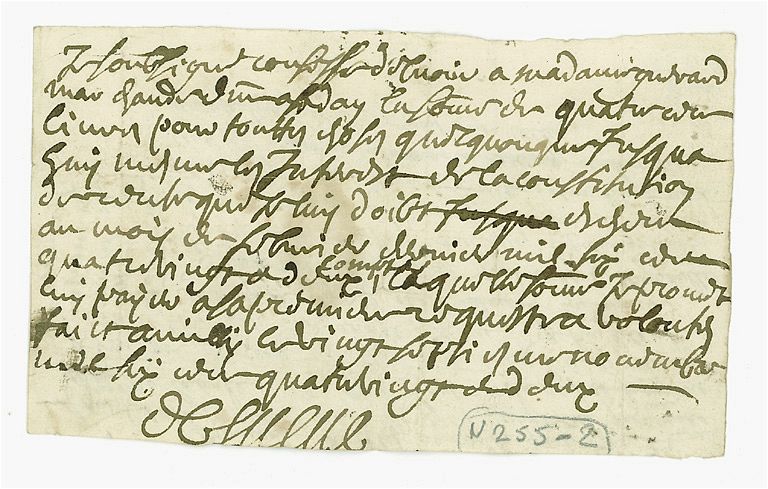 Je soubsigné confesse debvoir a madame guerard
marchande d'm la some de quatre cent
livres pour touttes choses quelquonque Jusqua
huy mesme les Interest de la constitution
de rente que je luy doibt Jusque escheue
au mois de febvrier dernier mil six cent
quatrevingt et deux compté laquelle some Je promet
luy payer a sa premiere requeste a volonté
faict a ce vingt septiesme novembre
mil six cent quatrevingt et deux
N 255-2